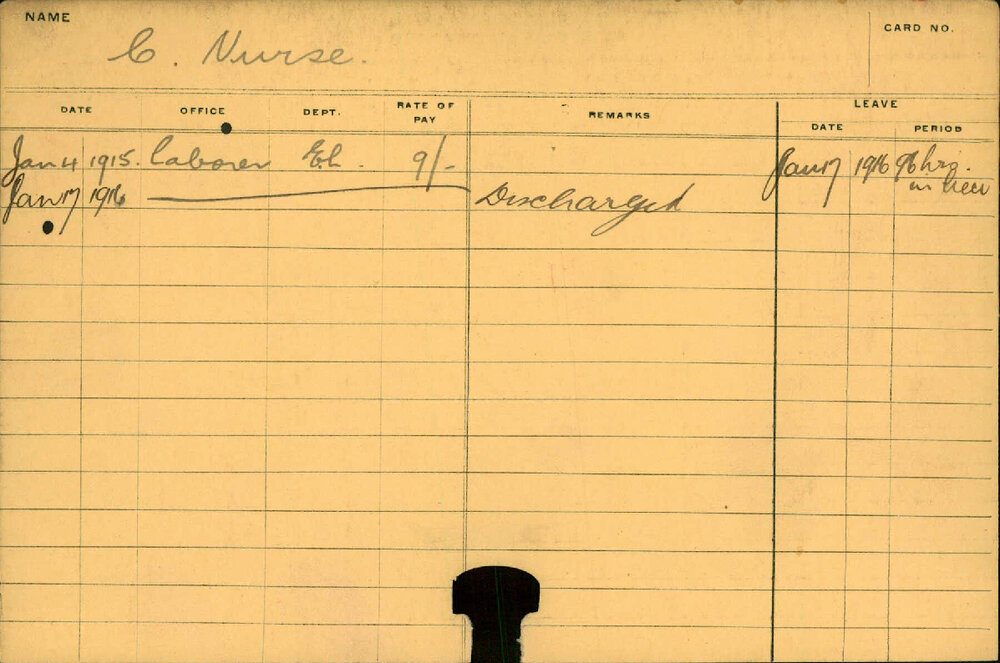 NAME
C. Nurse.
CARD NO.
DATE OFFICE DEPT. RATE OF PAY REMARKS LEAVE
DATE PERIOD
Jan 4 1915. Laborer El. 9/- Jan 17 1916 96 hrs.
in lieu
Jan 17 1916 Discharged